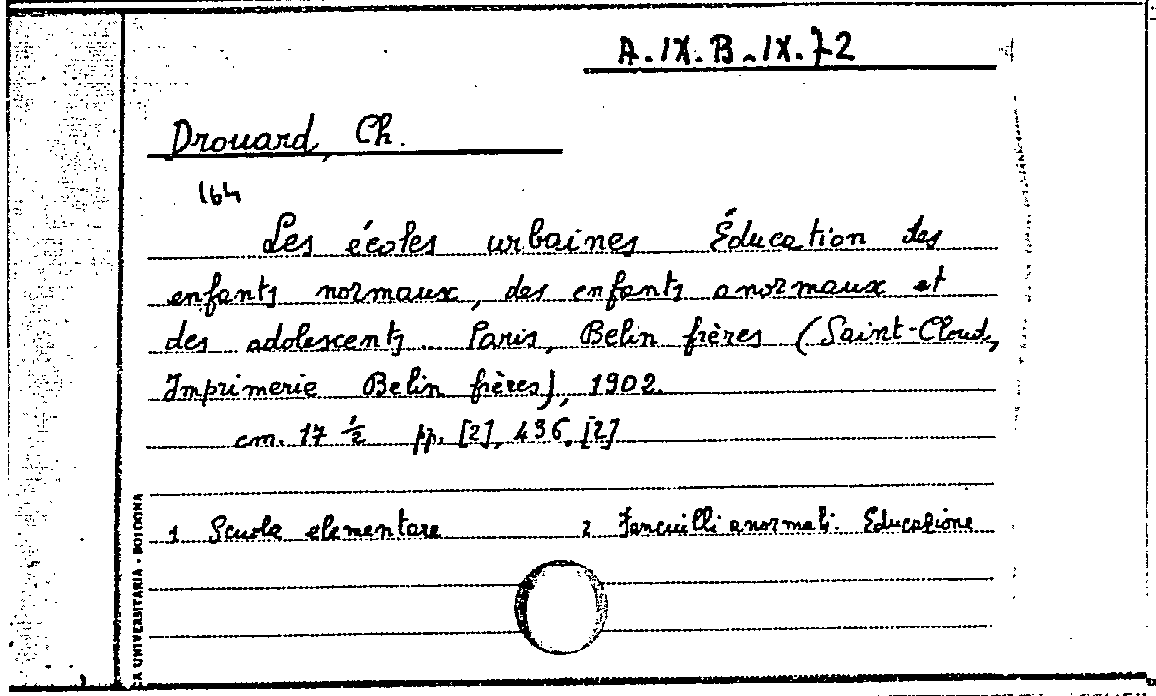 A.IX.B.IX.72
Drouard, Ch.
164
Les écoles urbaines Éducation des
enfants normaux, des enfants anormaux et
des adolescents. Paris, Belin frères (Saint-Cloud,
Imprimerie Belin frères), 1902.
cm. 17 ½ pp. [2], 436, [2]
1 Scuola elementare 2 Fanciulli anormali. Educazione
A UNIVERSITARIA - BOLOGNA